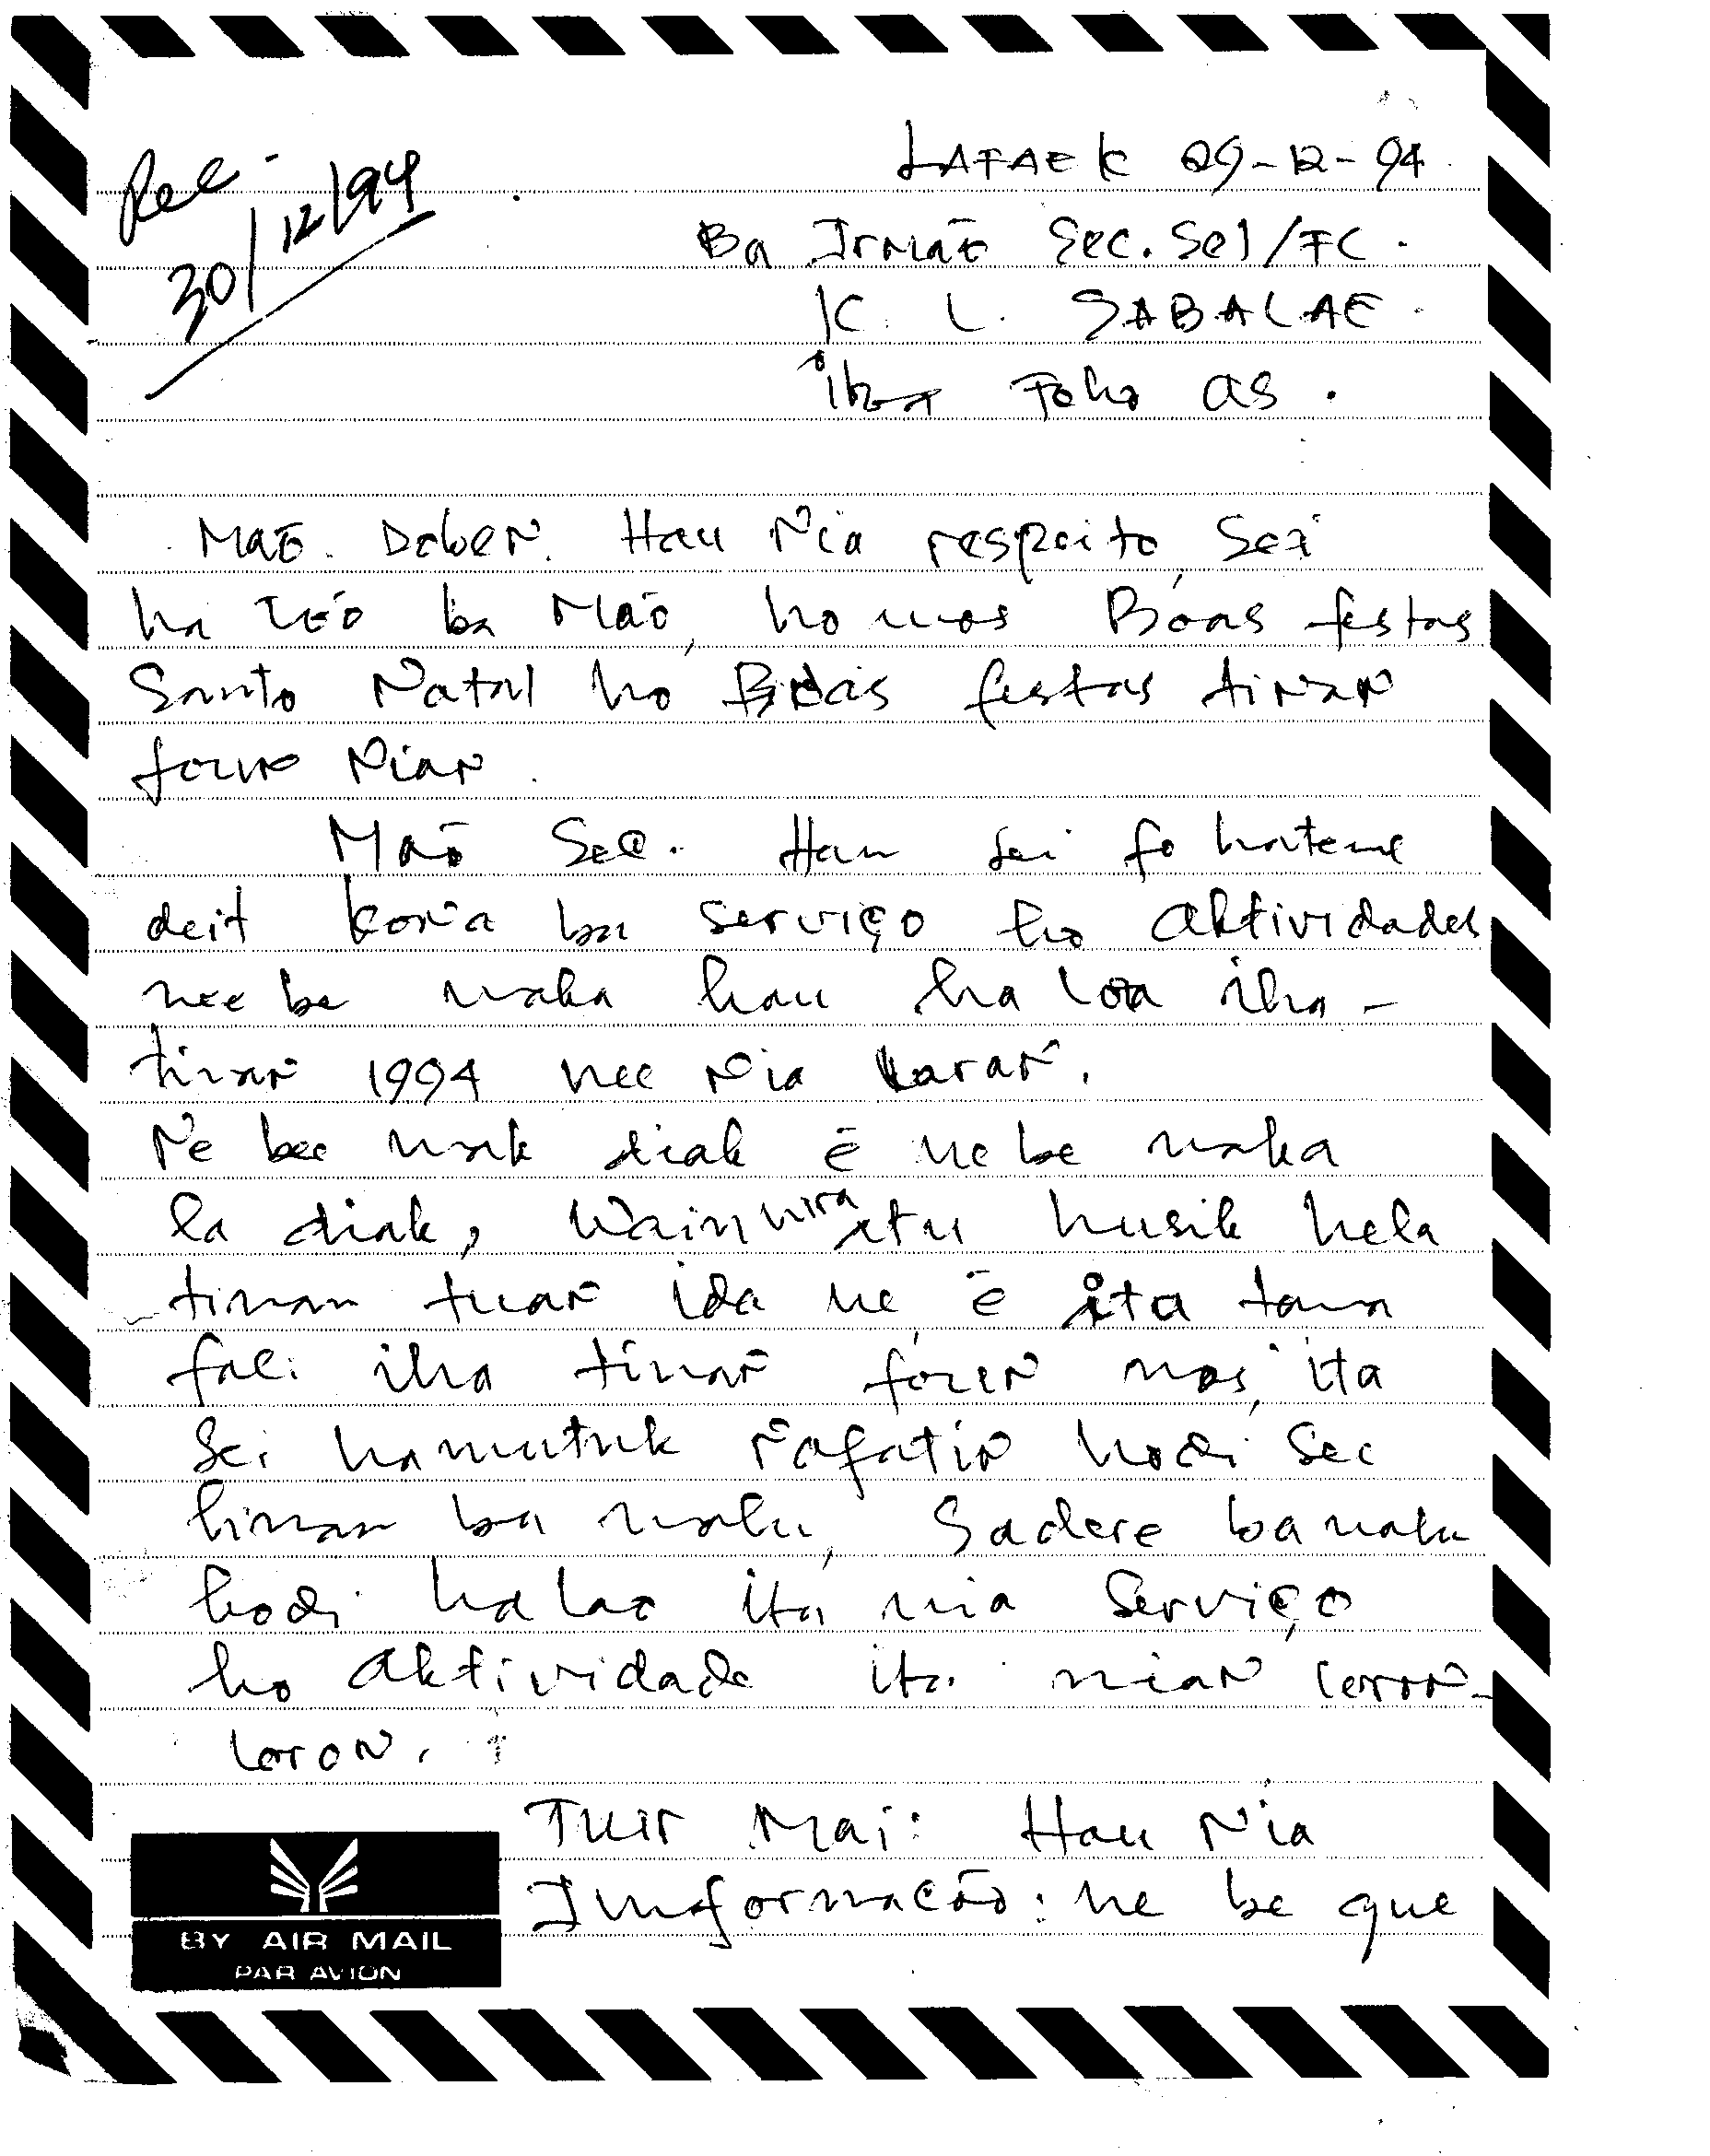 Rec.
30/12/94
LAFAEK 29-12-94
Ba Irmão Sec. Sel/FC.
K. L. SABALAE.
iha Foho as.
Maõ. Doben. Hau Nia respeito, Sei
ha too ba Maõ, ho mos Boas festas
Santo Natal ho Boas festas tinan
foun Nian.
Maõ Sec. Hau sei fo hatene
deit kona ba serviço ho aktividades
nee be maka hau ha loa iha -
tinan 1994 nee Nia laran.
Ne bee mak diak ē ne be maka
la diak, Wainhira atu husik hela
tinan tuan ida ne, ē ita tama
fali iha tinan foun mos, ita
Sei hamutuk nafatin hodi Sei
liman ba malu, Sadere ba malu
hodi halao ita nia Serviço
ho aktividade ita nian loron-
loron.
Tuir Mai: Hau Nia
Imformacão: ne be que
BY AIR MAIL
PAR AVION